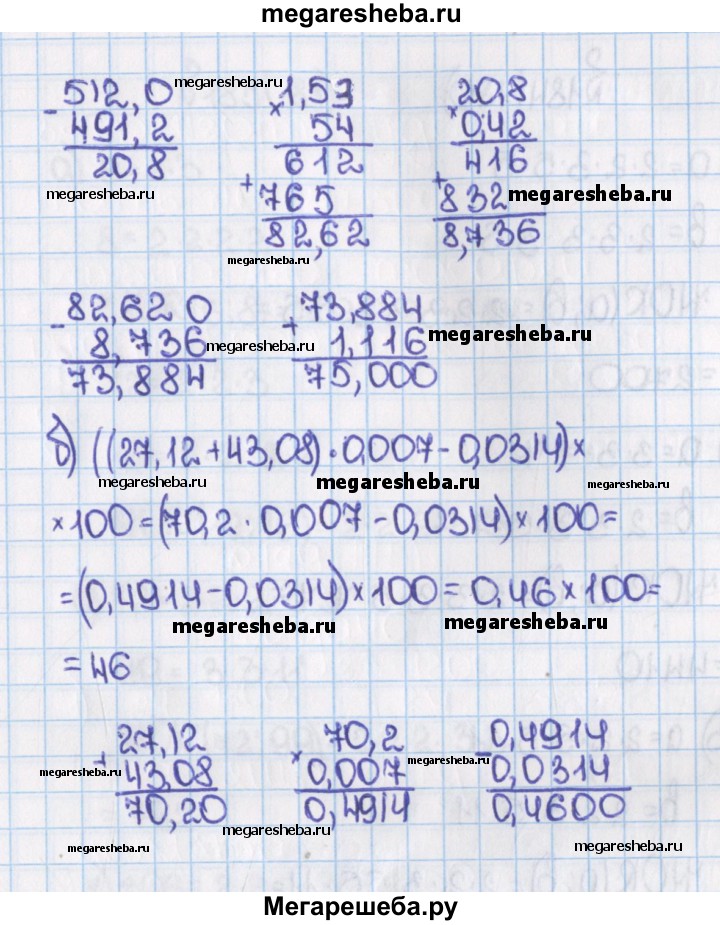 megaresheba.ru
512,0 megaresheba.ru 1,53 20,8
- 491,2 × 54 × 0,42
20,8 612 416
megaresheba.ru + 765 + 832 megaresheba.ru
82,62 8,736
megaresheba.ru
82,620 73,884
- 8,736 megaresheba.ru + 1,116 megaresheba.ru
73,884 75,000
б) ((27,12+43,08)·0,007-0,0314)×
megaresheba.ru megaresheba.ru megaresheba.ru
×100=(70,2·0,007-0,0314)×100=
=(0,4914-0,0314)×100=0,46×100=
megaresheba.ru megaresheba.ru
=46
27,12 70,2 0,4914
+ 43,08 × 0,007 - 0,0314
megaresheba.ru megaresheba.ru
70,20 0,4914 0,4600
megaresheba.ru
megaresheba.ru megaresheba.ru
Мегарешеба.ру